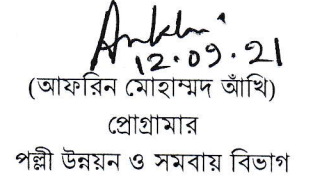 Ankhi
12.09.21
(আফরিন মোহাম্মদ আঁখি)
প্রোগ্রামার
পল্লী উন্নয়ন ও সমবায় বিভাগ